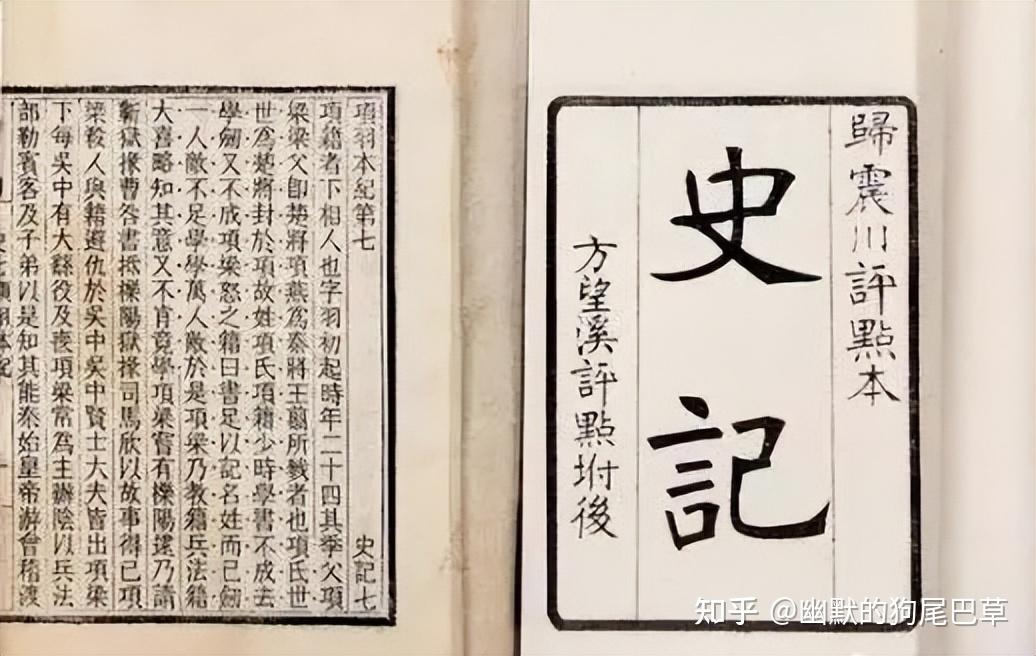 歸震川評點本
史記
方望溪評點坿後
項羽本紀第七 史記七
項籍者下相人也字羽初起時年二十四其季父項
梁梁父卽楚將項燕爲秦將王翦所戮者也項氏世
世爲楚將封於項故姓項氏項籍少時學書不成去
學劒又不成項梁怒之籍曰書足以記名姓而已劒
一人敵不足學學萬人敵於是項梁乃教籍兵法籍
大喜略知其意又不肯竟學項梁嘗有櫟陽逮乃請
蘄獄掾曹咎書抵櫟陽獄掾司馬欣以故事得已項
梁殺人與籍避仇於吳中吳中賢士大夫皆出項梁
下每吳中有大繇役及喪項梁常爲主辦陰以兵法
部勒賓客及子弟以是知其能秦始皇帝游會稽渡
知乎 @幽默的狗尾巴草